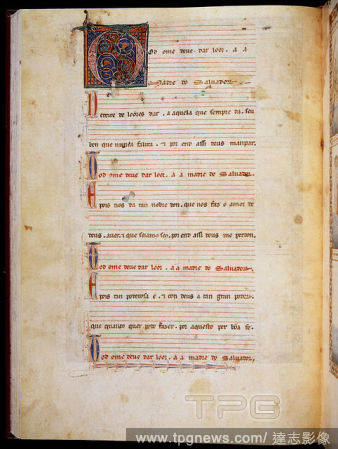 Tod ome deue dar loor, a a
Madre do Saluador.
Dereite de loores dar, a aquela que sempre da, seu
ben que nunca falirá, & por end assi deus manpar,
Tod ome deue dar loor, a a madre do Saluador,
E pois nos da tan nobre don, que nos faz o amor de
deus, auer, & que seiamos seus, por end assi deus me perdon,
Tod ome deue dar loor, a a madre do Saluador,
E pois tan poderosa é, & con deus a tan gran poder,
que quanto quer pode fazer, por aquesto per bõa fe,
Tod ome deue dar loor, a a madre do Saluador,
TPG
www.tpgnews.com/ 達志影像